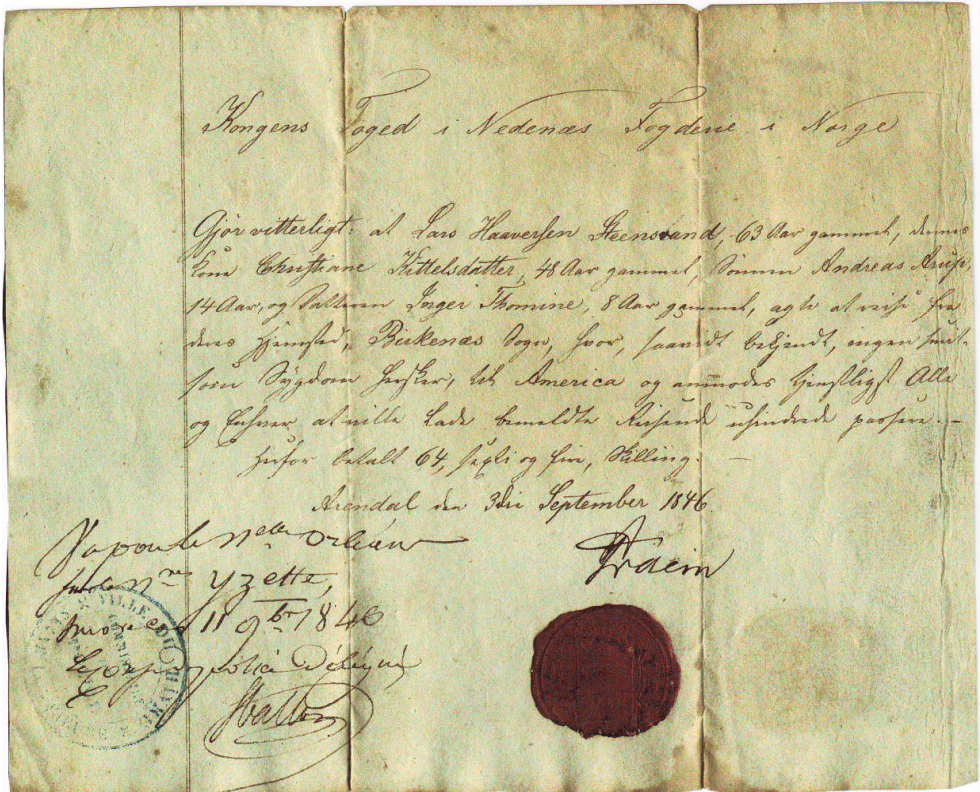 Kongens Foged i Nedenæs Fogderie i Norge
Gjør vitterligt: at Lars Haaversen Steensvand, 63 Aar gammel, dennes
Kone Christiane Kittelsdatter, 48 Aar gammel, Sønnen Andreas Arup,
14 Aar, og Datteren Inger Thomine, 8 Aar gammel, agte at reise fra
deres Hjemsted, Birkenæs Sogn, hvor, saavidt bekjendt, ingen smit-
som Sygdom hersker, til America og anmodes tjenstligst Alle
og Enhver at ville lade bemeldte Reisende uhindrede passere.—
Herfor betalt 64, sexti og fire, Skilling.—
Arendal den 3die September 1846
Vu pour la Nelle Orléans
sur le Nre yzette,
11 9br 1846
Le police Délégué
VILLE DU HAVRE